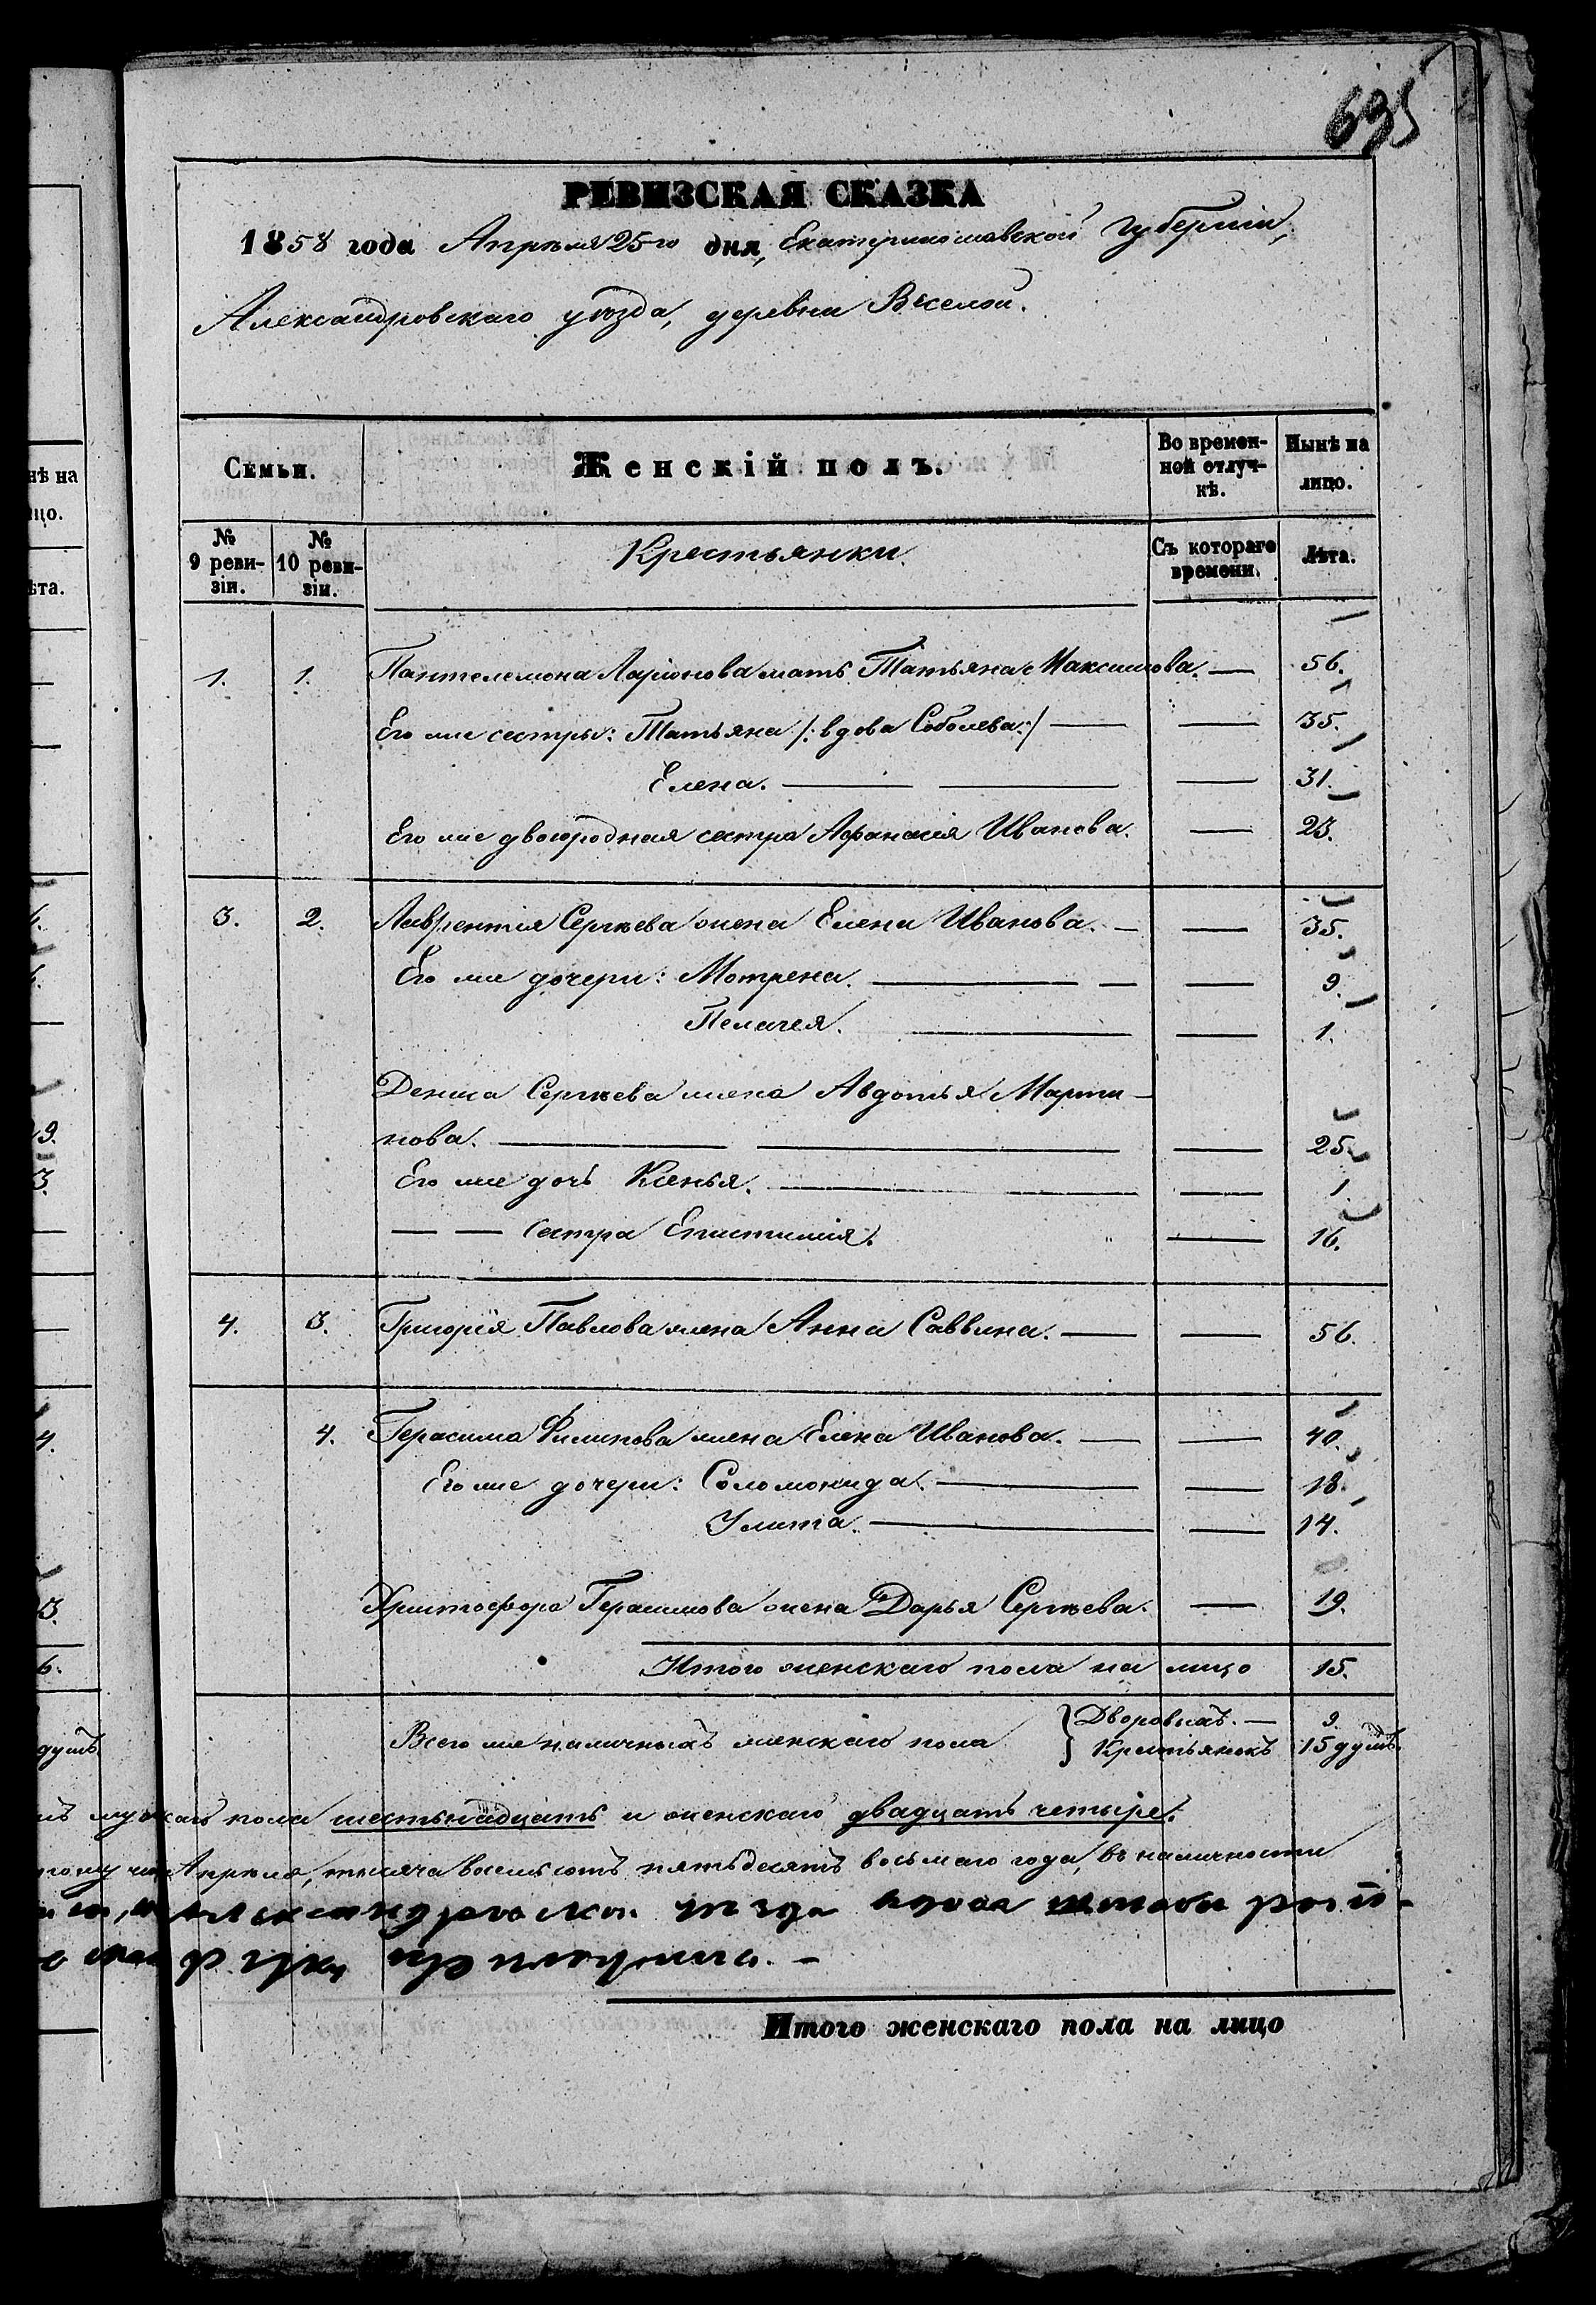 695
РЕВИЗСКАЯ СКАЗКА
1858 года Апрѣля 25го дня, Екатеринославской Губерніи,
Александровскаго уѣзда, деревни Веселой.
Семьи. Женскій полъ. Во времен- Нынѣ на
ной отлуч- лицо.
кѣ.
№ № Крестьянки. Съ котораго Лѣта.
9 реви- 10 реви- времени.
зіи. зіи.
1. 1. Пантелемона Ларіонова мать Татьяна Максимова. — 56.
Его же сестры: Татьяна /: вдова Соболева :/ — — 35.
Елена. — — — 31.
Его же двоюродная сестра Афанасія Иванова. — 23.
3. 2. Лаврентія Сергѣева жена Елена Иванова. — — 35.
Его же дочери: Мотрена. — — — 9.
Пелагея. — — 1.
Дениса Сергѣева жена Авдотья Марти-
нова. — — — 25.
Его же дочь Ксенья. — — — 1.
— — сестра Епистимія. — 16.
4. 3. Григорія Павлова жена Анна Саввина. — — 56.
4. Герасима Филипова жена Елена Иванова. — — 40.
Его же дочери: Соломонида. — — 18.
Улита. — — 14.
Христофора Герасимова жена Дарья Сергѣева. — 19.
Итого женскаго пола на лицо 15.
Всего же наличныхъ женскаго пола } Дворовыхъ. — 9.
Крестьянокъ 15 душъ.
пола шестьнадцать и женскаго двадцать четыре.
Апрѣля, тысяча восемьсотъ пятьдесятъ восьмаго года, въ наличности
уѣзда
руку приложилъ. —
Итого женскаго пола на лицо
нѣ на
цо.
ѣта.
9.
3.
4.
3
6.
душъ